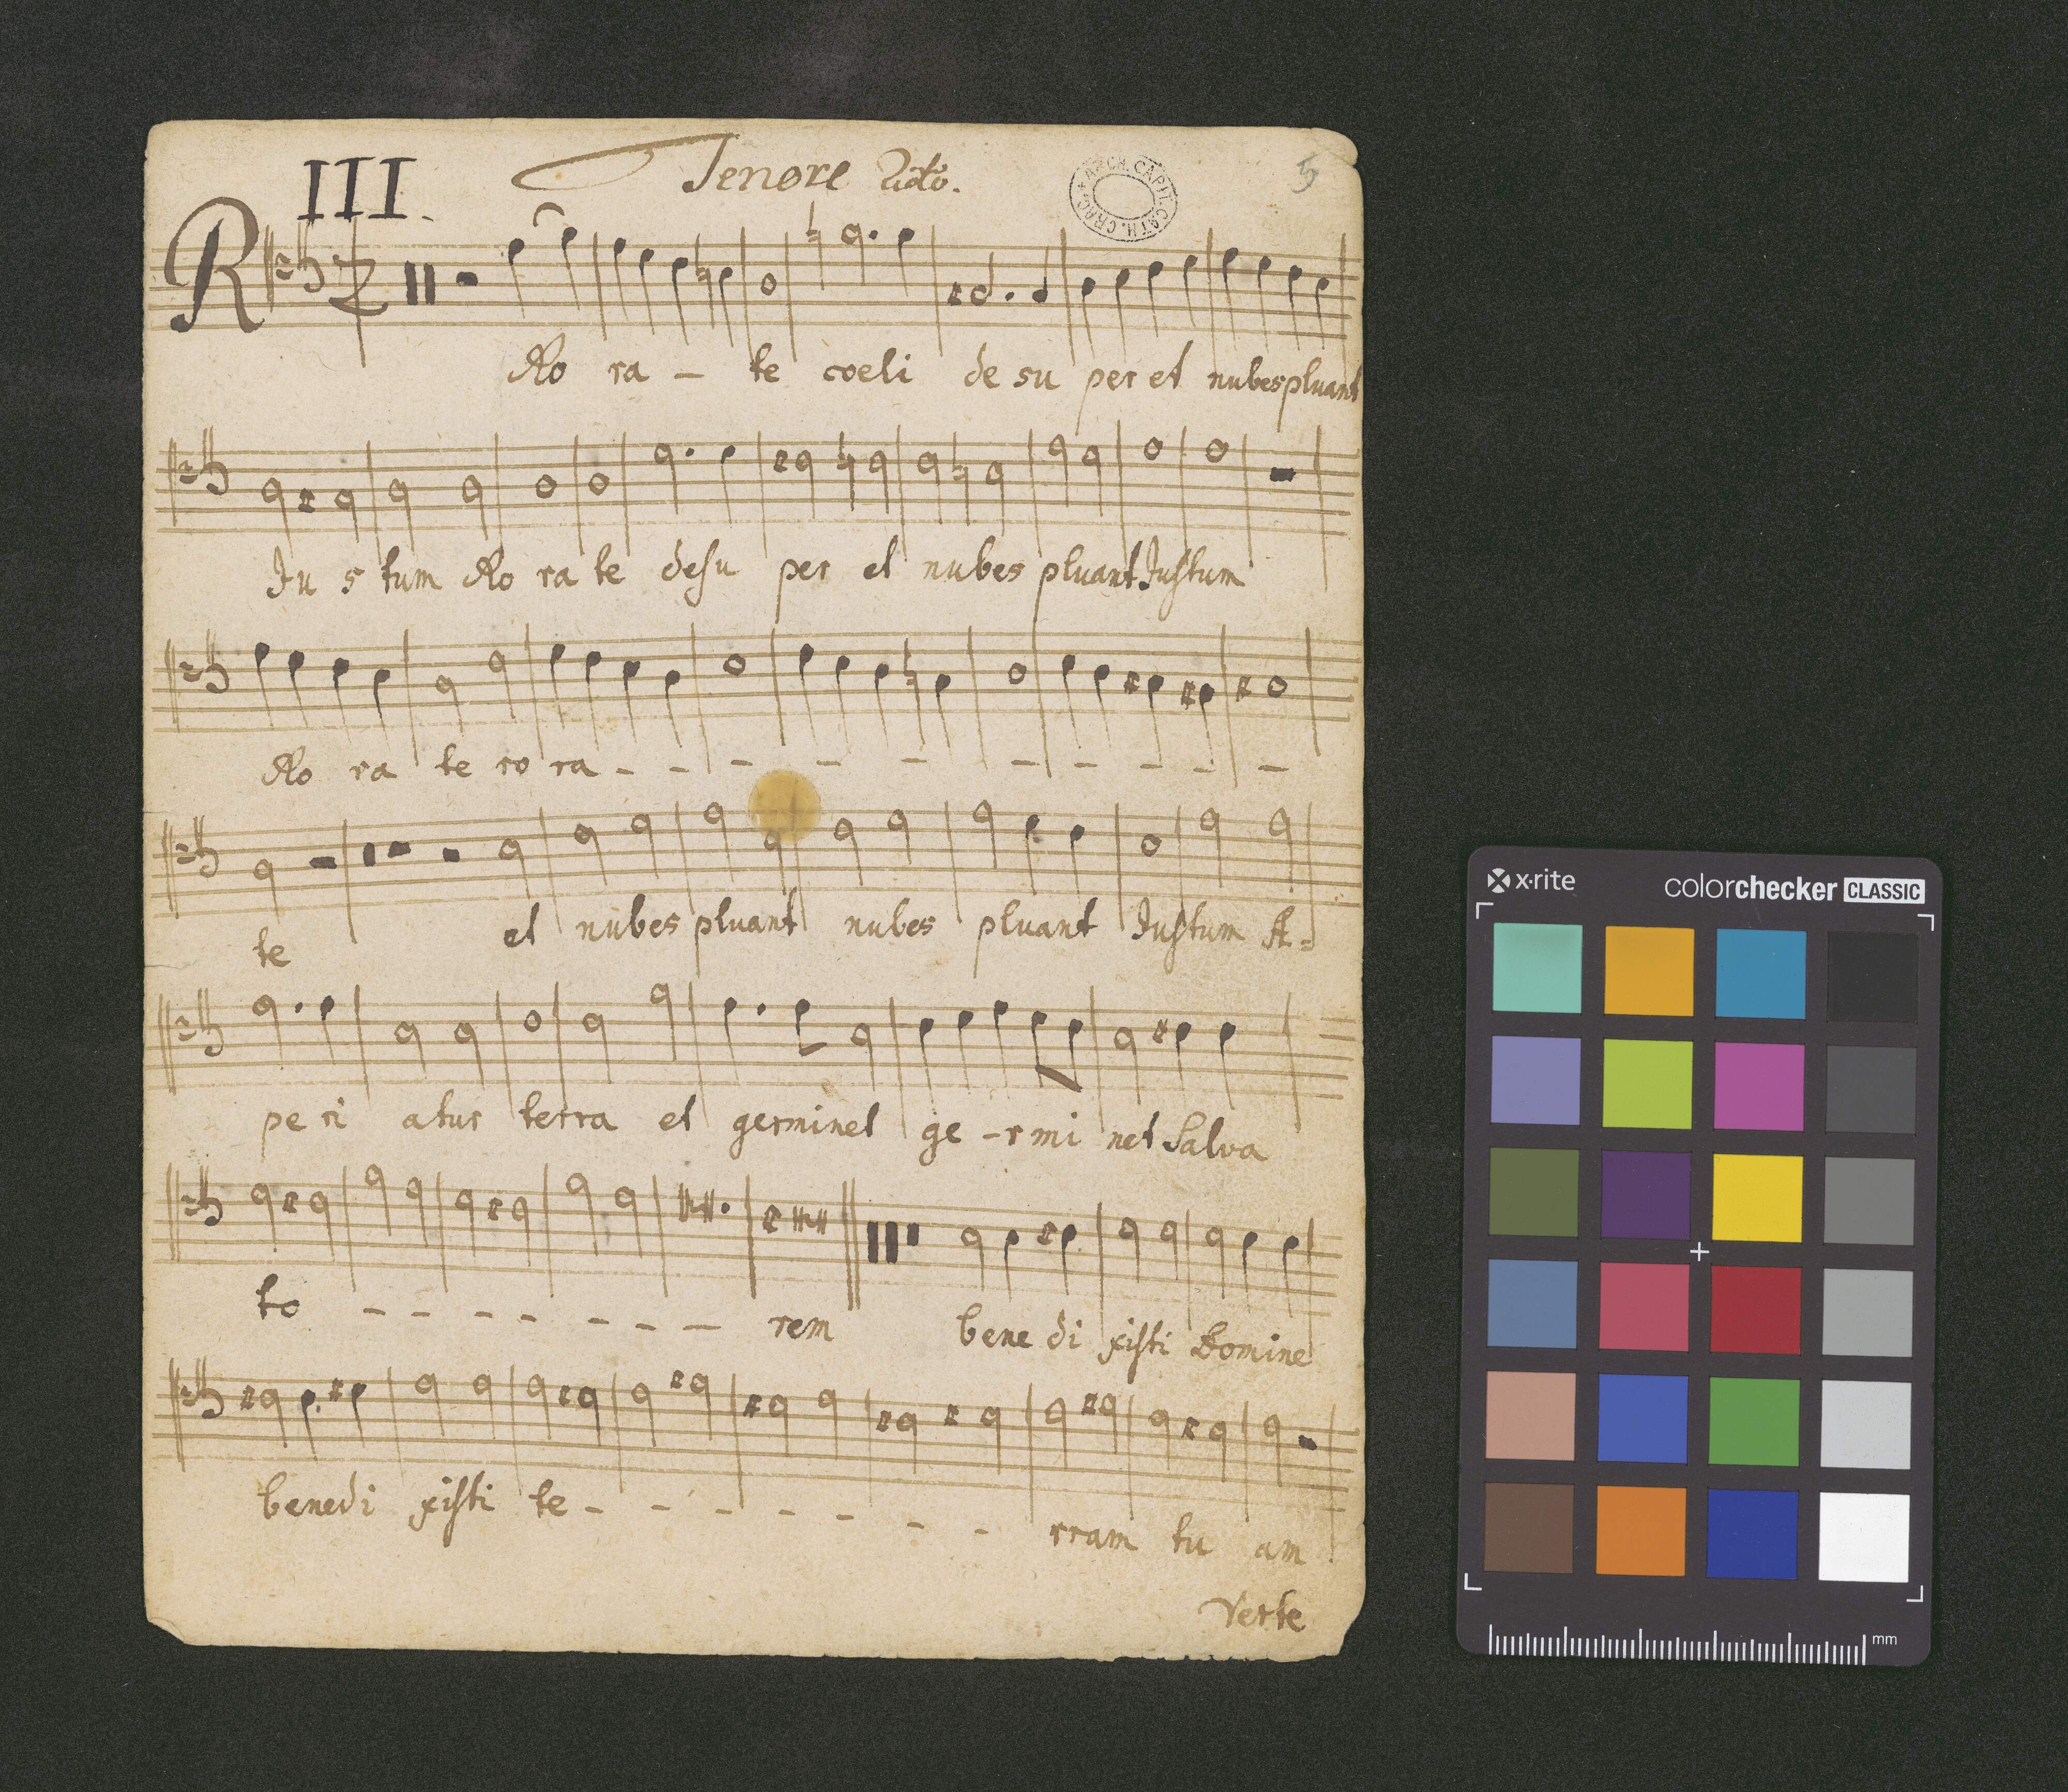 III.
Tenore 2do.
ARCH. CAPIT. CATH. CRAC.
5
R
Ro ra - te coeli de su per et nubes pluant
Ju s tum Ro ra te desu per et nubes pluant Justum
Ro ra te ro ra - - - - - - - - - -
te et nubes pluant nubes pluant Justum A=
pe ri atur terra et germinet ge - r mi net Salva
to - - - - - - - rem bene di xisti Domine
benedi xisti te - - - - - - - rram tu am
Verte
x-rite
colorchecker CLASSIC
mm